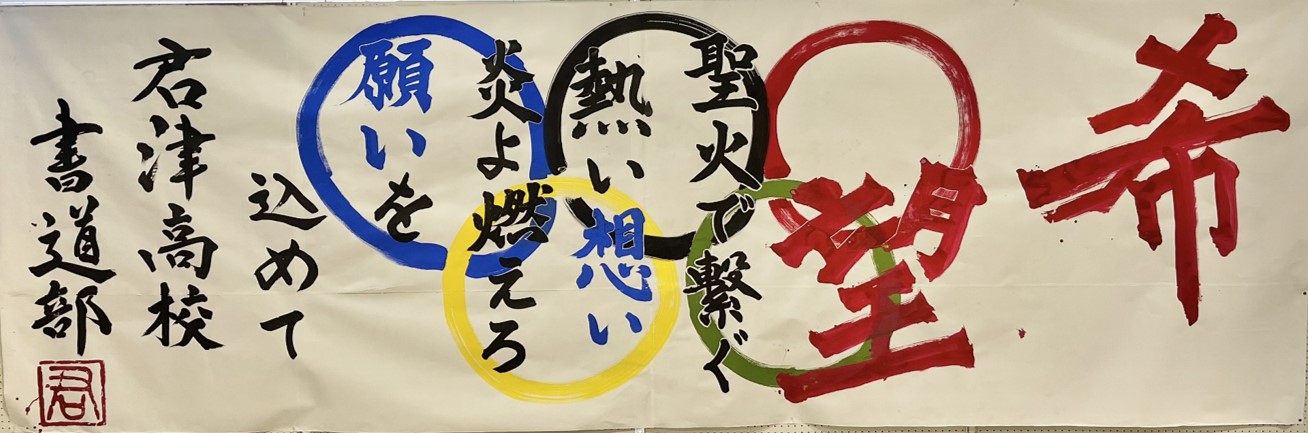 希望
聖火で繋ぐ
熱い想い
炎よ燃えろ
願いを
込めて
君津高校
書道部
君